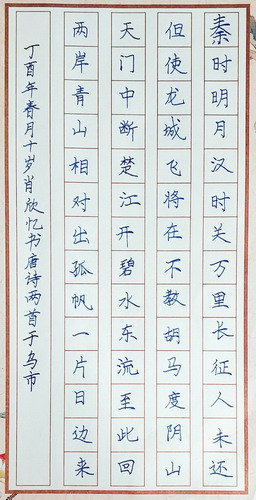 秦时明月汉时关万里长征人未还
但使龙城飞将在不教胡马度阴山
天门中断楚江开碧水东流至此回
两岸青山相对出孤帆一片日边来
丁酉年春月十岁肖欣忆书唐诗两首于乌市